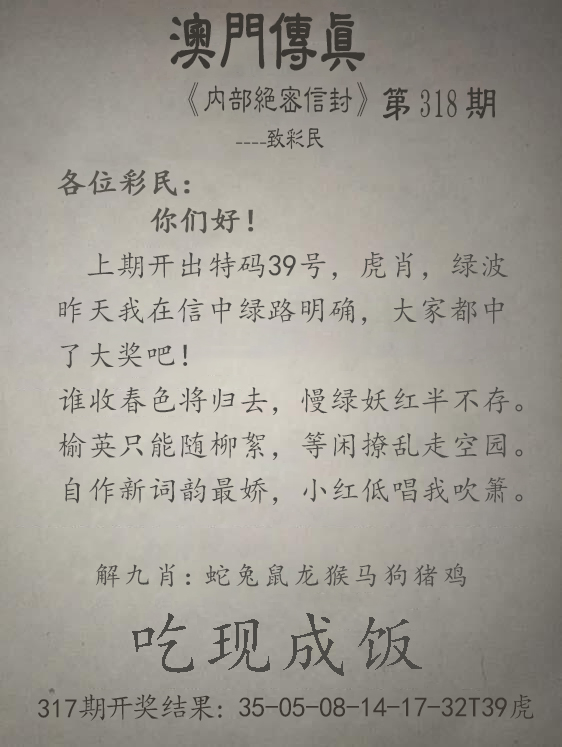 澳門傳真
《内部絕密信封》第318期
----致彩民
各位彩民：
你们好！
上期开出特码39号，虎肖，绿波
昨天我在信中绿路明确，大家都中
了大奖吧！
谁收春色将归去，慢绿妖红半不存。
榆英只能随柳絮，等闲撩乱走空园。
自作新词韵最娇，小红低唱我吹箫。
解九肖：蛇兔鼠龙猴马狗猪鸡
吃现成饭
317期开奖结果：35-05-08-14-17-32T39虎